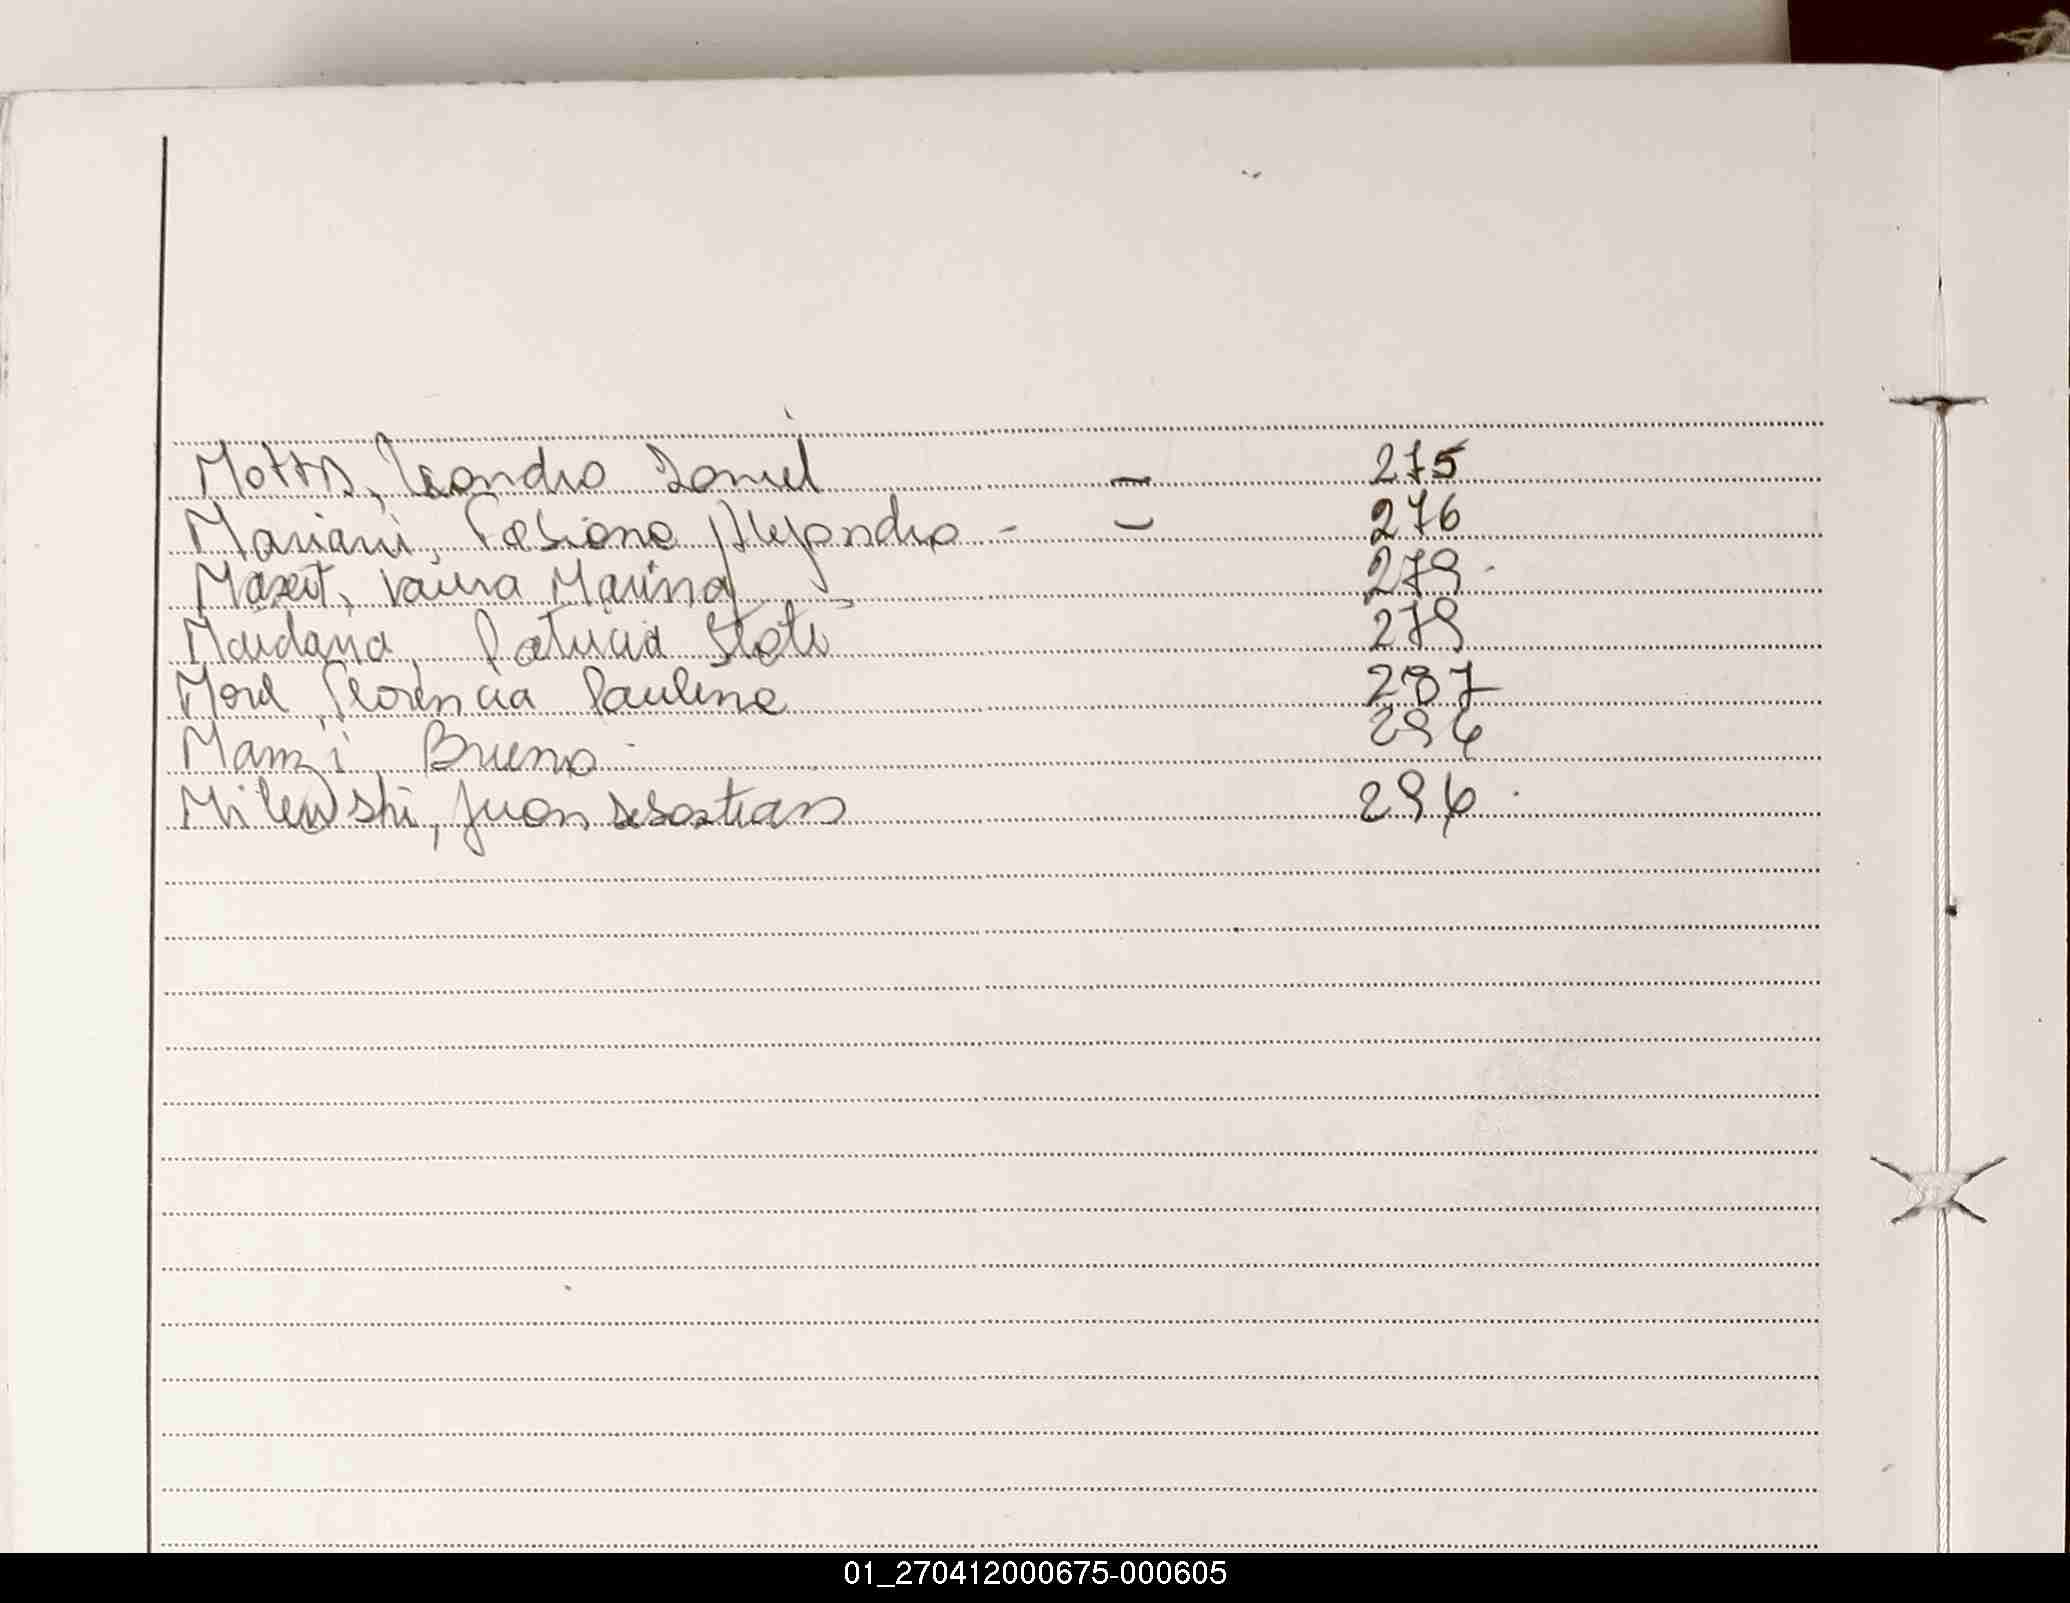 Motta, Leandro Daniel - 275
Mariani, Fabiana Alejandra - - 276
Maxit, Vanina Marina 279.
Maidana, Patricia 279
Morel, Florencia Paulina 287
Manzi Bruno 294
Milewski, Juan Sebastian 294.
01_270412000675-000605